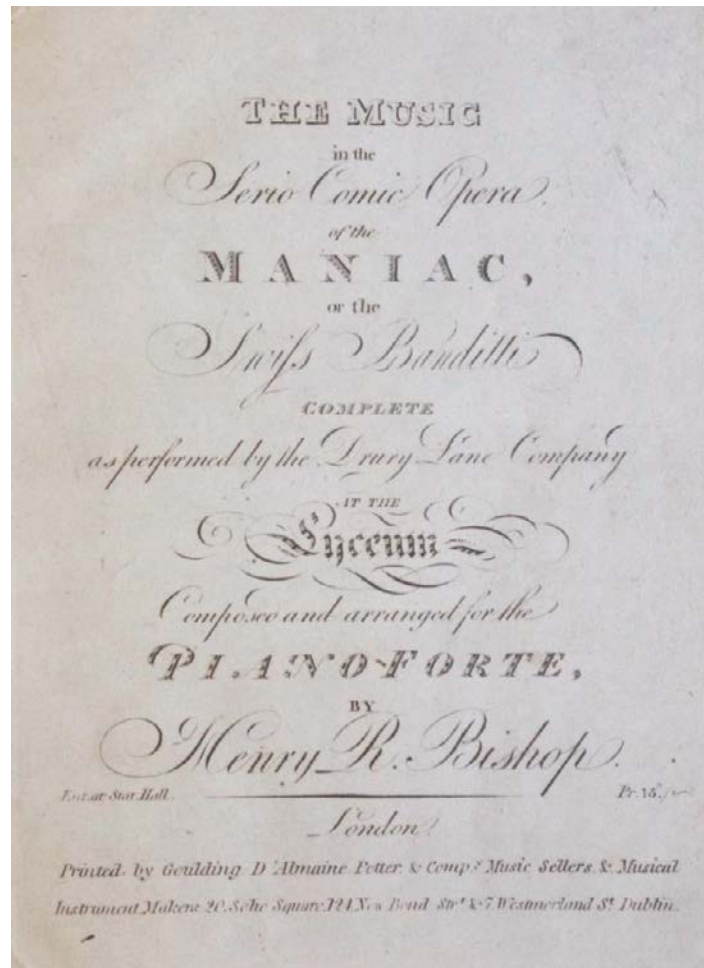 THE MUSIC
in the
Serio Comic Opera.
of the
MANIAC,
or the
Swiſs Banditti
COMPLETE
as performed by the Drury Lane Company
AT THE
Lyceum
Composed and arranged for the
PIANO-FORTE,
BY
Henry R. Bishop.
Ent. at Sta. Hall. Pr. 15s.
London
Printed by Goulding D'Almaine Potter & Compy. Music Sellers & Musical
Instrument Makers 20. Soho Square, 124 New Bond Strt. & 7. Westmorland St. Dublin.